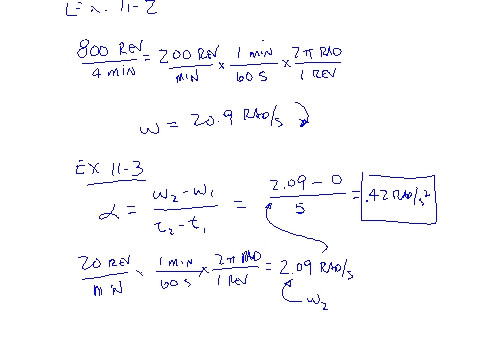 Ex. 11-2
800 REV / 4 MIN = 200 REV / MIN × 1 MIN / 60 S × 2π RAD / 1 REV
ω = 20.9 RAD/s
EX 11-3
α = ω₂ - ω₁ / τ₂ - τ₁ = 2.09 - 0 / 5 = .42 RAD/s²
20 REV / MIN × 1 MIN / 60 S × 2π RAD / 1 REV = 2.09 RAD/s
ω₂